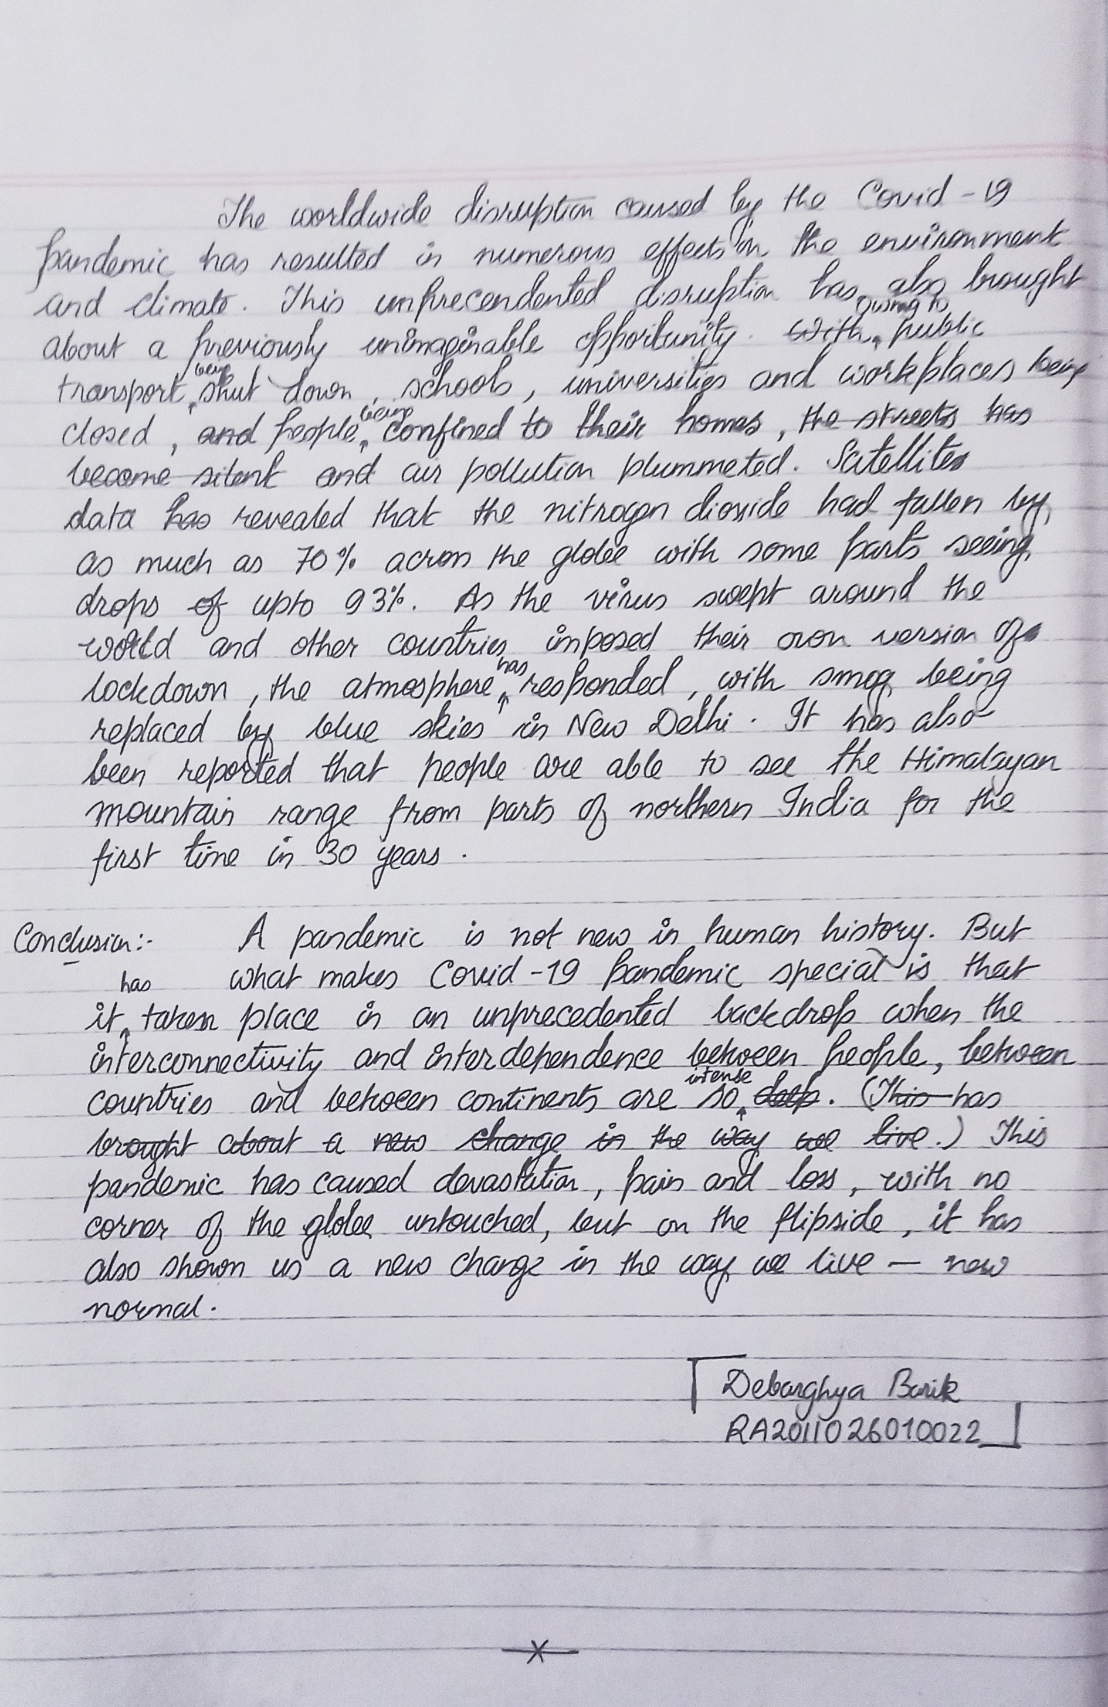 The worldwide disruption caused by the Covid-19
pandemic has resulted in numerous effects on the environment
and climate. This unprecendented disruption has also brought
about a previously unimaginable opportunity. With owing to public
transport being shut down, schools, universities and workplaces being
closed, and people being confined to their homes, the streets has
become silent and air pollution plummeted. Satellites
data has revealed that the nitrogen dioxide had fallen by
as much as 70% across the globe with some parts seeing
drops of upto 93%. As the virus swept around the
world and other countries imposed their own version of
lockdown, the atmosphere has responded, with smog being
replaced by blue skies in New Delhi. It has also
been reported that people are able to see the Himalayan
mountain range from parts of northern India for the
first time in 30 years.
Conclusion:- A pandemic is not new in human history. But
what makes Covid-19 pandemic special is that
it has taken place in an unprecedented backdrop when the
interconnectivity and interdependence between people, between
countries and between continents are so intense deep. (This has
brought about a new change in the way we live.) This
pandemic has caused devastation, pain and loss, with no
corner of the globe untouched, but on the flipside, it has
also shown us a new change in the way we live — new
normal.
Debarghya Barik
RA2011026010022
X